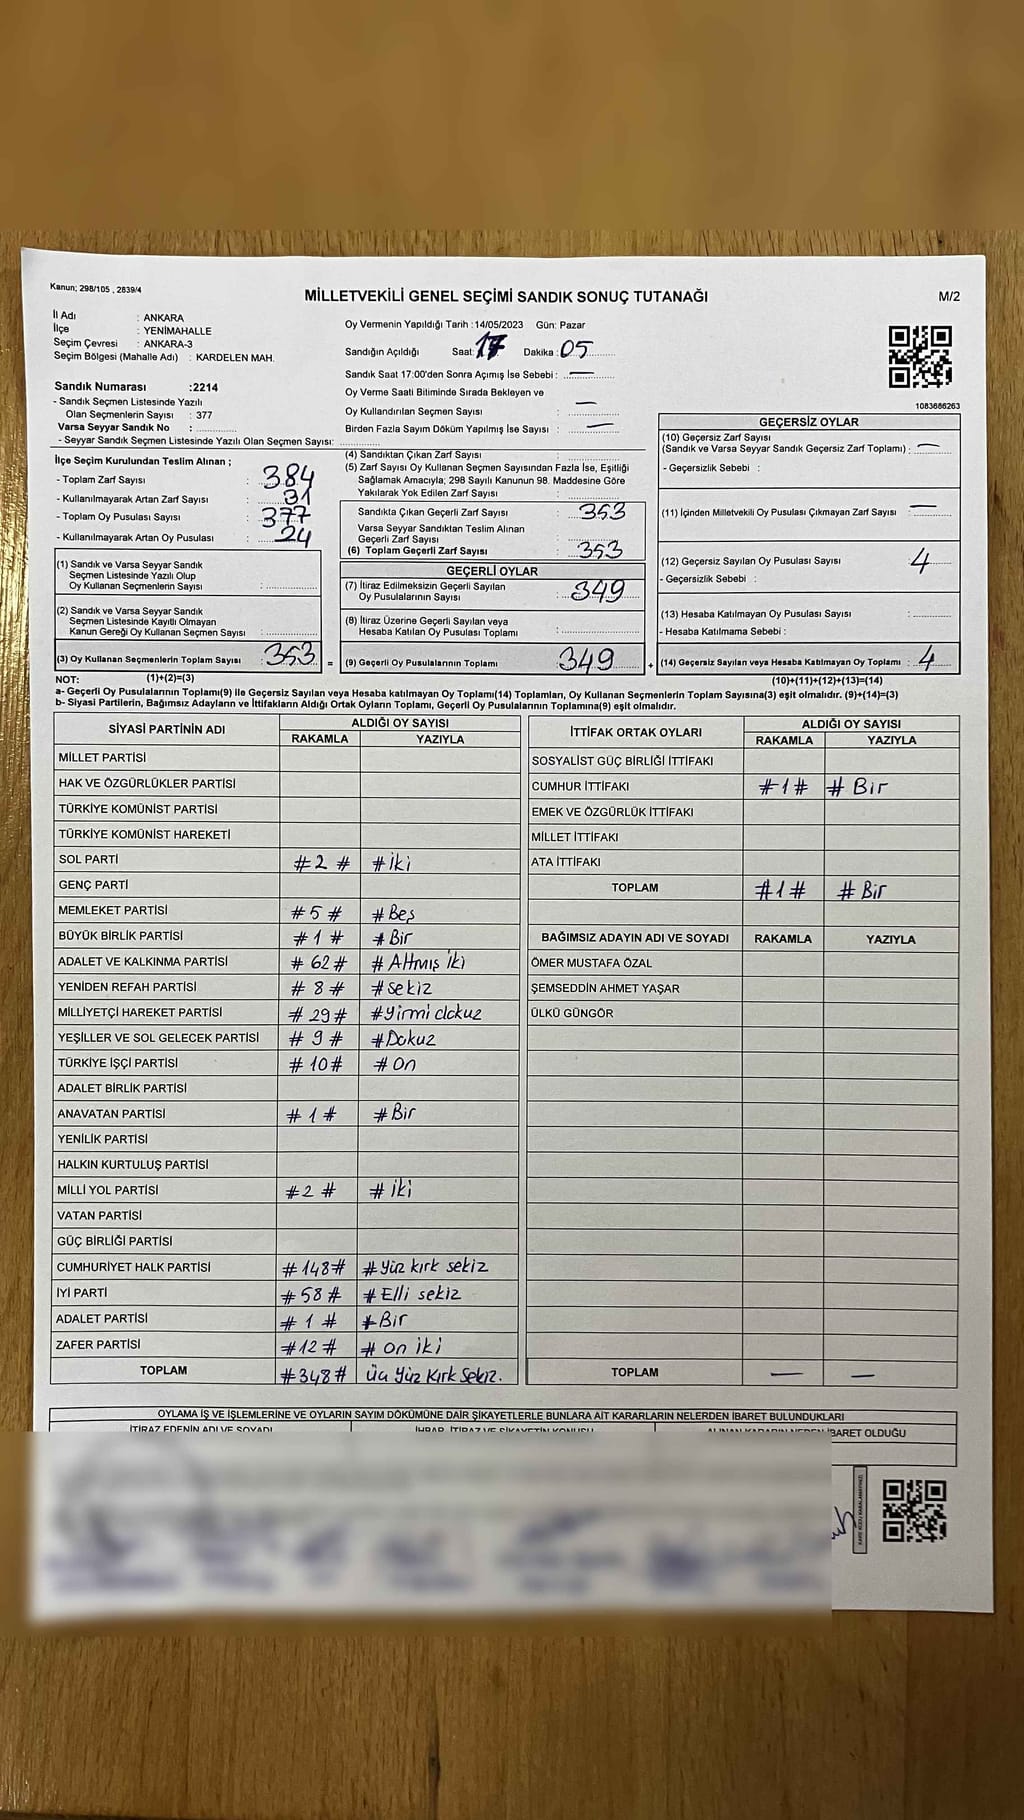 Kanun; 298/105 , 2839/4
MİLLETVEKİLİ GENEL SEÇİMİ SANDIK SONUÇ TUTANAĞI
M/2
İl Adı : ANKARA
İlçe : YENİMAHALLE
Seçim Çevresi : ANKARA-3
Seçim Bölgesi (Mahalle Adı) : KARDELEN MAH.
Sandık Numarası :2214
- Sandık Seçmen Listesinde Yazılı
Olan Seçmenlerin Sayısı : 377
Varsa Seyyar Sandık No :
- Seyyar Sandık Seçmen Listesinde Yazılı Olan Seçmen Sayısı:
Oy Vermenin Yapıldığı Tarih :14/05/2023 Gün: Pazar
Sandığın Açıldığı Saat: 17 Dakika : 05
Sandık Saat 17:00'den Sonra Açımış İse Sebebi : —
Oy Verme Saati Bitiminde Sırada Bekleyen ve
Oy Kullandırılan Seçmen Sayısı : —
Birden Fazla Sayım Döküm Yapılmış İse Sayısı : —
1083686263
İlçe Seçim Kurulundan Teslim Alınan ;
- Toplam Zarf Sayısı : 384
- Kullanılmayarak Artan Zarf Sayısı : 31
- Toplam Oy Pusulası Sayısı : 377
- Kullanılmayarak Artan Oy Pusulası : 24
(1) Sandık ve Varsa Seyyar Sandık
Seçmen Listesinde Yazılı Olup
Oy Kullanan Seçmenlerin Sayısı :
(2) Sandık ve Varsa Seyyar Sandık
Seçmen Listesinde Kayıtlı Olmayan
Kanun Gereği Oy Kullanan Seçmen Sayısı :
(3) Oy Kullanan Seçmenlerin Toplam Sayısı : 353 =
(4) Sandıktan Çıkan Zarf Sayısı :
(5) Zarf Sayısı Oy Kullanan Seçmen Sayısından Fazla İse, Eşitliği
Sağlamak Amacıyla; 298 Sayılı Kanunun 98. Maddesine Göre
Yakılarak Yok Edilen Zarf Sayısı :
Sandıkta Çıkan Geçerli Zarf Sayısı : 353
Varsa Seyyar Sandıktan Teslim Alınan
Geçerli Zarf Sayısı :
(6) Toplam Geçerli Zarf Sayısı : 353
GEÇERLİ OYLAR
(7) İtiraz Edilmeksizin Geçerli Sayılan
Oy Pusulalarının Sayısı : 349
(8) İtiraz Üzerine Geçerli Sayılan veya
Hesaba Katılan Oy Pusulası Toplamı :
(9) Geçerli Oy Pusulalarının Toplamı : 349 +
GEÇERSİZ OYLAR
(10) Geçersiz Zarf Sayısı
(Sandık ve Varsa Seyyar Sandık Geçersiz Zarf Toplamı) : —
- Geçersizlik Sebebi :
(11) İçinden Milletvekili Oy Pusulası Çıkmayan Zarf Sayısı : —
(12) Geçersiz Sayılan Oy Pusulası Sayısı : 4
- Geçersizlik Sebebi :
(13) Hesaba Katılmayan Oy Pusulası Sayısı :
- Hesaba Katılmama Sebebi :
(14) Geçersiz Sayılan veya Hesaba Katılmayan Oy Toplamı : 4
NOT: (1)+(2)=(3) (10)+(11)+(12)+(13)=(14)
a- Geçerli Oy Pusulalarının Toplamı(9) ile Geçersiz Sayılan veya Hesaba katılmayan Oy Toplamı(14) Toplamları, Oy Kullanan Seçmenlerin Toplam Sayısına(3) eşit olmalıdır. (9)+(14)=(3)
b- Siyasi Partilerin, Bağımsız Adayların ve İttifakların Aldığı Ortak Oyların Toplamı, Geçerli Oy Pusulalarının Toplamına(9) eşit olmalıdır.
SİYASİ PARTİNİN ADI ALDIĞI OY SAYISI
RAKAMLA YAZIYLA
MİLLET PARTİSİ
HAK VE ÖZGÜRLÜKLER PARTİSİ
TÜRKİYE KOMÜNİST PARTİSİ
TÜRKİYE KOMÜNİST HAREKETİ
SOL PARTİ #2# #İki
GENÇ PARTİ
MEMLEKET PARTİSİ #5# #Beş
BÜYÜK BİRLİK PARTİSİ #1# #Bir
ADALET VE KALKINMA PARTİSİ #62# #Altmış iki
YENİDEN REFAH PARTİSİ #8# #sekiz
MİLLİYETÇİ HAREKET PARTİSİ #29# #Yirmi dokuz
YEŞİLLER VE SOL GELECEK PARTİSİ #9# #Dokuz
TÜRKİYE İŞÇİ PARTİSİ #10# #On
ADALET BİRLİK PARTİSİ
ANAVATAN PARTİSİ #1# #Bir
YENİLİK PARTİSİ
HALKIN KURTULUŞ PARTİSİ
MİLLİ YOL PARTİSİ #2# #İki
VATAN PARTİSİ
GÜÇ BİRLİĞİ PARTİSİ
CUMHURİYET HALK PARTİSİ #148# #Yüz kırk sekiz
İYİ PARTİ #58# #Elli sekiz
ADALET PARTİSİ #1# #Bir
ZAFER PARTİSİ #12# #On iki
TOPLAM #348# Üç Yüz Kırk Sekiz.
İTTİFAK ORTAK OYLARI ALDIĞI OY SAYISI
RAKAMLA YAZIYLA
SOSYALİST GÜÇ BİRLİĞİ İTTİFAKI
CUMHUR İTTİFAKI #1# #Bir
EMEK VE ÖZGÜRLÜK İTTİFAKI
MİLLET İTTİFAKI
ATA İTTİFAKI
TOPLAM #1# #Bir
BAĞIMSIZ ADAYIN ADI VE SOYADI RAKAMLA YAZIYLA
ÖMER MUSTAFA ÖZAL
ŞEMSEDDİN AHMET YAŞAR
ÜLKÜ GÜNGÖR
TOPLAM — —
OYLAMA İŞ VE İŞLEMLERİNE VE OYLARIN SAYIM DÖKÜMÜNE DAİR ŞİKAYETLERLE BUNLARA AİT KARARLARIN NELERDEN İBARET BULUNDUKLARI
İTİRAZ EDENİN ADI VE SOYADI İHBAR, İTİRAZ VE ŞİKAYETİN KONUSU ALINAN KARARIN NEDEN İBARET OLDUĞU